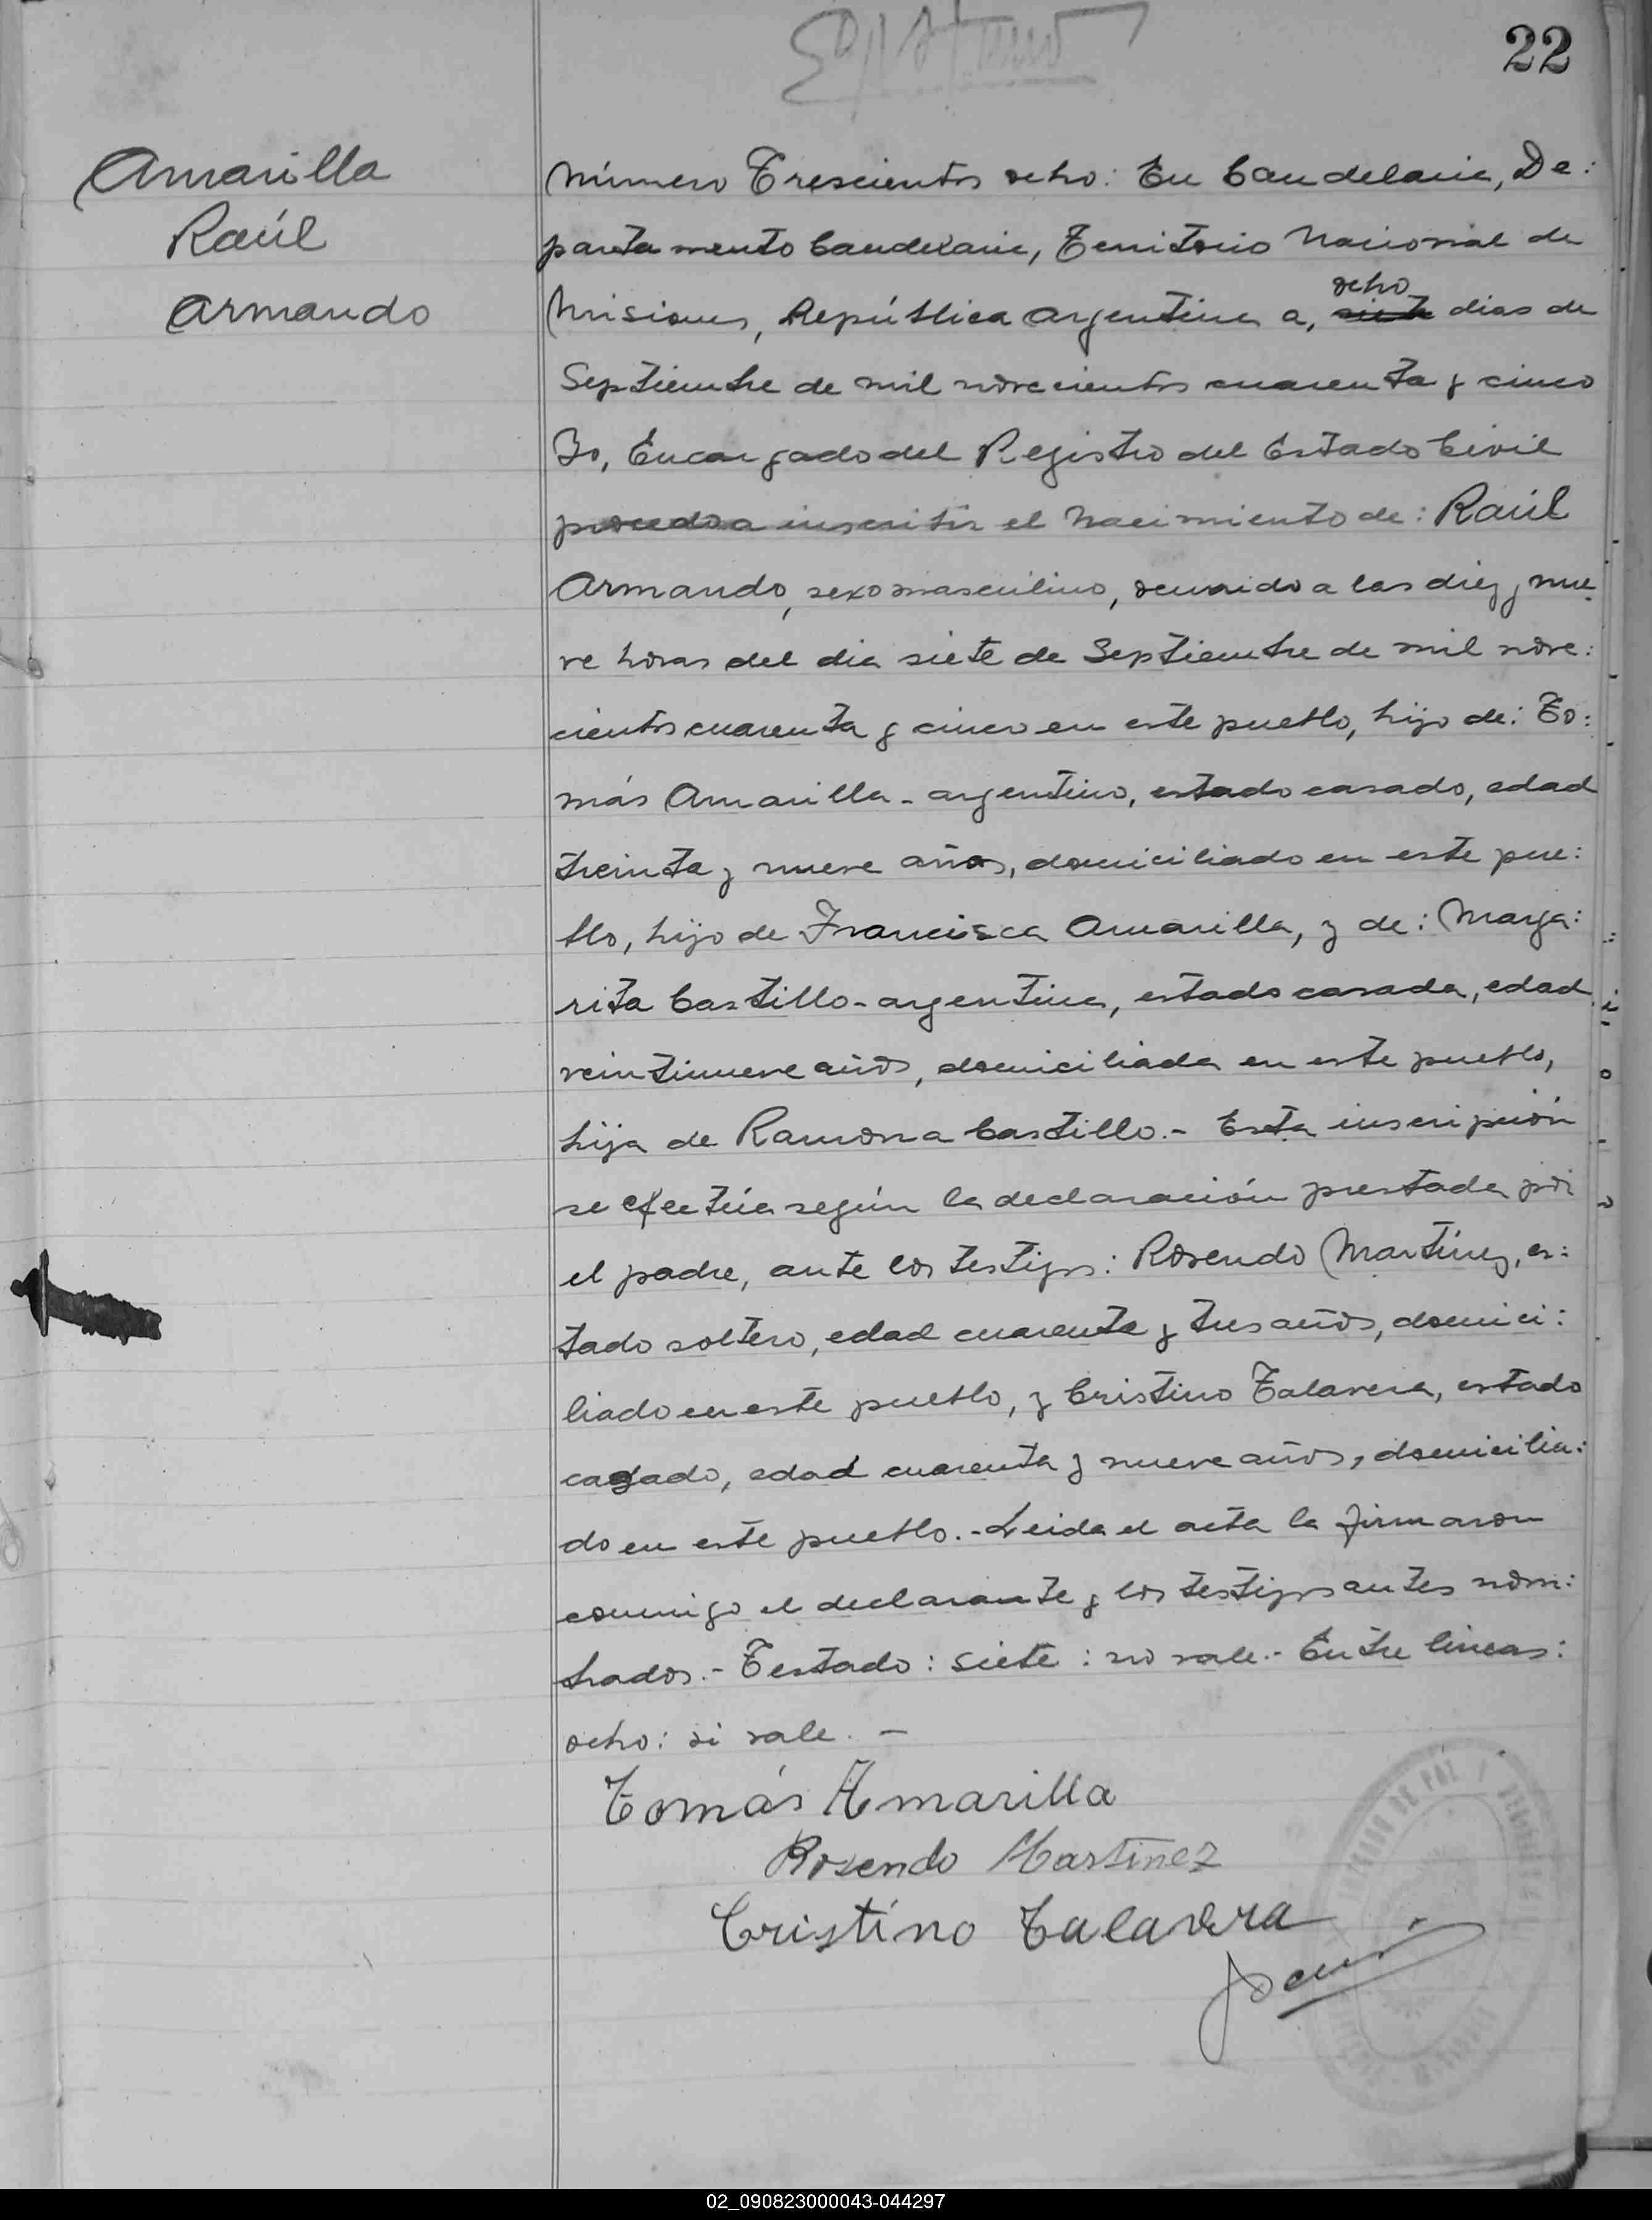 22
Amarilla
Raúl
Armando
Número Trescientos ocho: En Candelaria, De:
partamento Candelaria, Territorio Nacional de
Misiones, República Argentina a, siete ocho dias de
Septiembre de mil novecientos cuarenta y cinco
Yo, Encargado del Registro del Estado Civil
procedo a inscribir el Nacimiento de: Raúl
Armando, sexo masculino, ocurrido a las diez y nue:
ve horas del dia siete de Septiembre de mil nove:
cientos cuarenta y cinco en este pueblo, hijo de: To:
más Amarilla - argentino, estado casado, edad
treinta y nueve años, domiciliado en este pue:
blo, hijo de Francisca Amarilla, y de: Marga:
rita Castillo - argentina, estado casada, edad
veintinueve años, domiciliada en este pueblo,
hija de Ramona Castillo.- Esta inscripción
se efectúa según la declaración prestada por
el padre, ante los testigos: Rosendo Martínez, es:
tado soltero, edad cuarenta y tres años, domici:
liado en este pueblo, y Cristino Talavera, estado
casado, edad cuarenta y nueve años, domicilia:
do en este pueblo.- Leida el acta la firmaron
conmigo el declarante y los testigos antes nom:
brados.- Testado: siete: no vale.- Entre lineas:
ocho: si vale. -
Tomás Amarilla
Rosendo Martínez
Cristino Talavera
JUZGADO DE PAZ
02_090823000043-044297